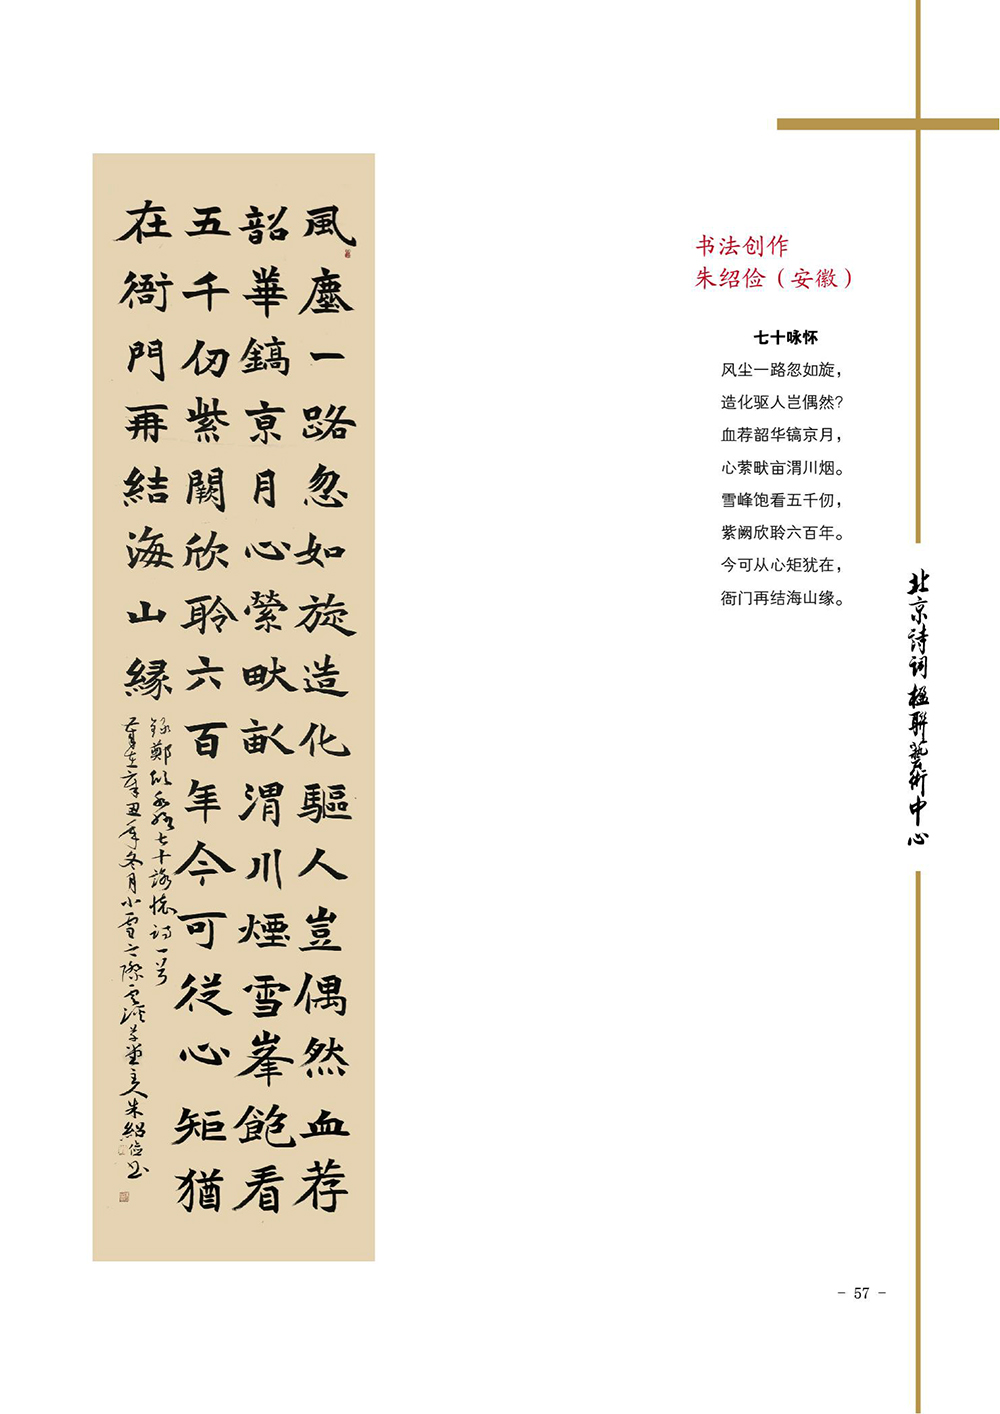 風塵一路忽如旋造化驅人豈偶然血荐
韶華鎬京月心縈畎畝渭川煙雪峯飽看
五千仞紫闕欣聆六百年今可從心矩猶
在衙門再結海山緣
錄鄭欣淼七十詠懷詩一首
歲在辛丑年冬月小雪之際 草堂主人朱紹儉書
书法创作
朱绍俭（安徽）
七十咏怀
风尘一路忽如旋，
造化驱人岂偶然？
血荐韶华镐京月，
心萦畎亩渭川烟。
雪峰饱看五千仞，
紫阙欣聆六百年。
今可从心矩犹在，
衙门再结海山缘。
北京诗词楹聯藝術中心
- 57 -